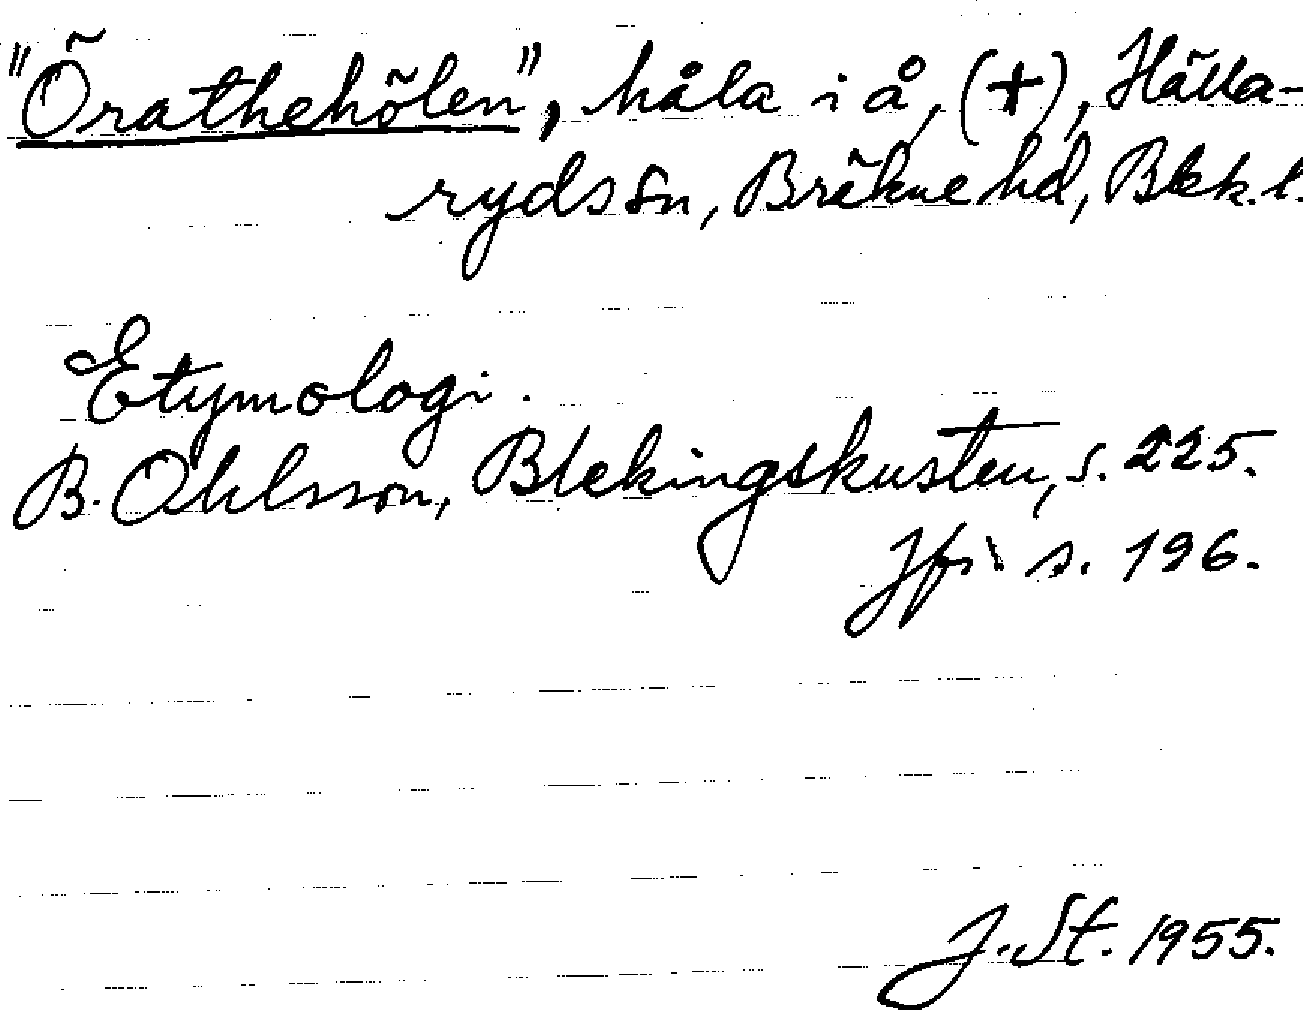 "Örathehölen", håla i å, (+), Hälla-
ryds sn, Bräkne hd, Blek. l.
Etymologi.
B. Ohlsson, Blekingskusten, s. 225.
Jfr s. 196.
J. St. 1955.